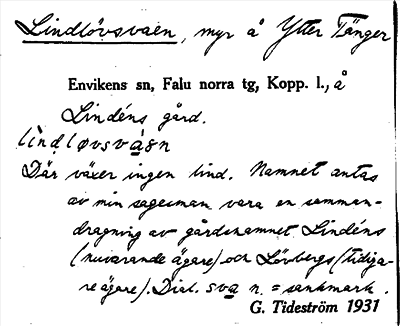 Lindlövsvaen, myr å Ytter Tänger
Envikens sn, Falu norra tg, Kopp. l., å
Lindéns gård.
lìndløvsvaən
Där växer ingen lind. Namnet antas
av min sagesman vara en samman-
dragning av gårdsnamnet Lindéns
(nuvarande ägare) och Lövbergs (tidiga-
re ägare). Dial. sva n. = sankmark.
G. Tideström 1931